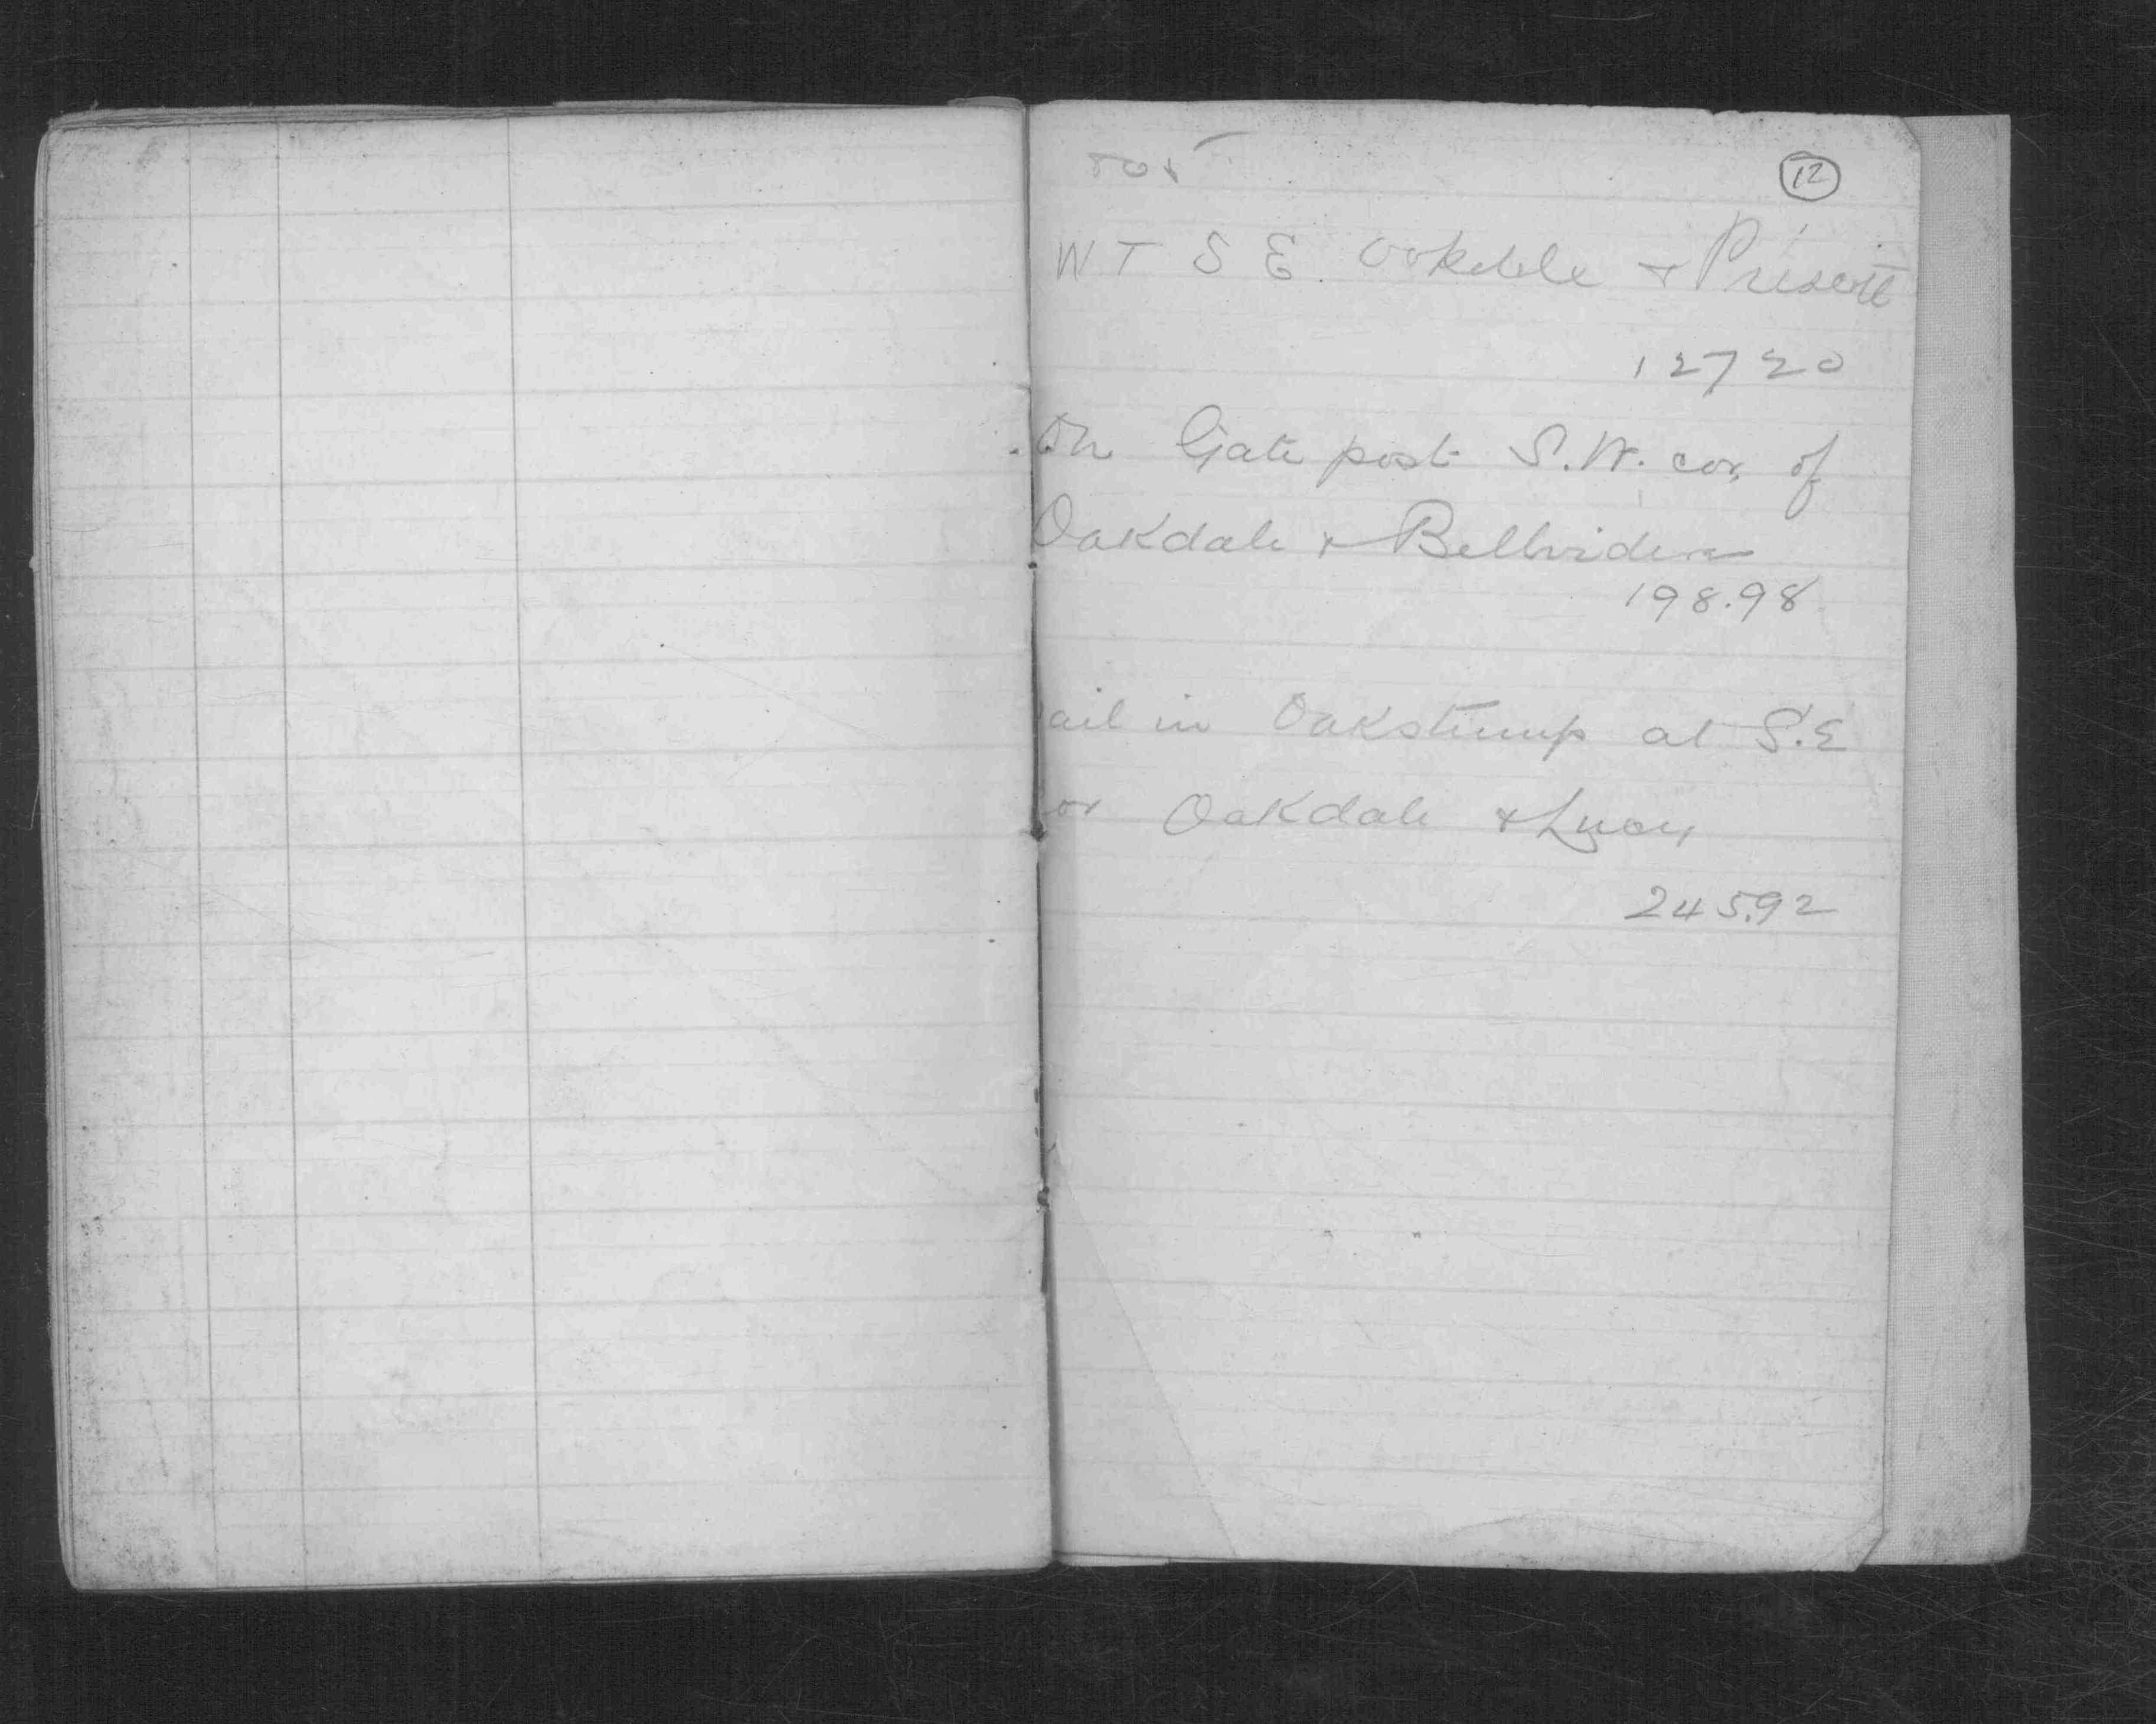 12
W T S E. Oakdale & Prescott
127 20
On Gate post S.W. cor. of
Oakdale & Bellvidere
198.98
ail in Oakstump at S.E
or Oakdale & Lucy
245.92